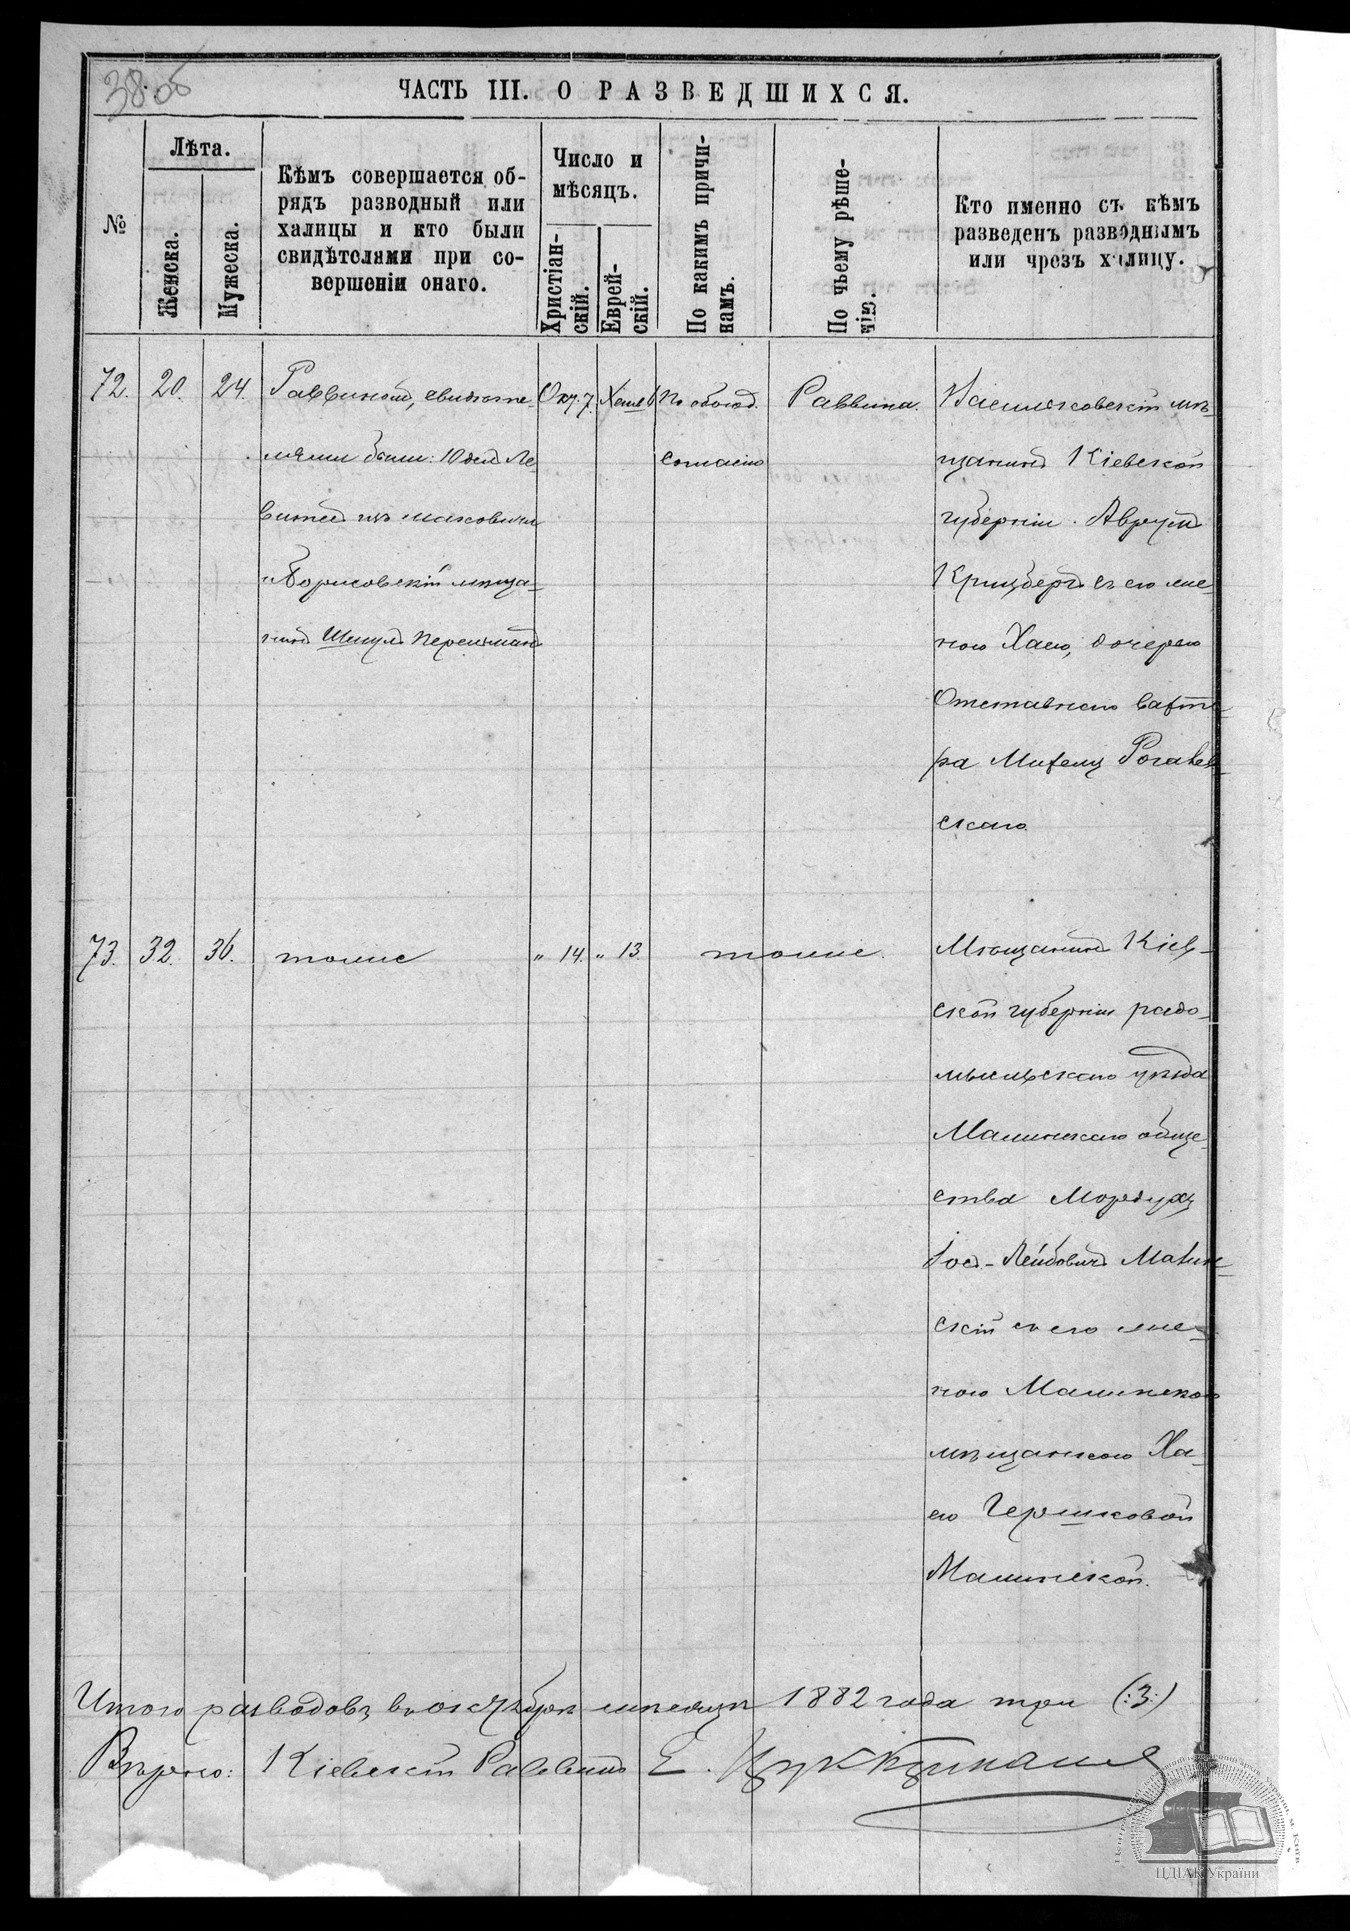 38 об
ЧАСТЬ III. О РАЗВЕДШИХСЯ.
№
Лѣта.
Женска.
Мужеска.
Кѣмъ совершается об-
рядъ разводный или
халицы и кто были
свидѣтелями при со-
вершеніи онаго.
Число и
мѣсяцъ.
Христіан-
скій.
Еврей-
скій.
По какимъ причи-
намъ.
По чьему рѣше-
нію.
Кто именно съ кѣмъ
разведенъ разводнымъ
или чрезъ халицу.
72. 20. 24.
Раввиномъ, свидѣте-
лями были: Юдель Ле
витъ
и Борисовскій мѣща-
нинъ Шмуль Перельманъ
Окт. 7.
По обоюд.
согласію
Раввина.
Васильковскій мѣ-
щанинъ Кіевской
губерніи Аврумъ
Крицбергъ съ его же-
ною Хаею, дочерью
Отставного
ра
скаго
73. 32. 36.
тоже
" 14. " 13.
тоже.
Мѣщанинъ Кіев-
ской губерніи радо-
мысльскаго уѣзда
Малинскаго обще-
ства Мордухъ
Іось-Лейбовичъ Малин-
скій съ его же-
ною Малинскою
мѣщанкою Ха-
ею Гершковой
Малинской.
Итого разводовъ въ октябрѣ мѣсяцѣ 1882 года три (:3:)
Вѣрно: Кіевскій Раввинъ Е. Цуккерманъ
ЦДІАК України